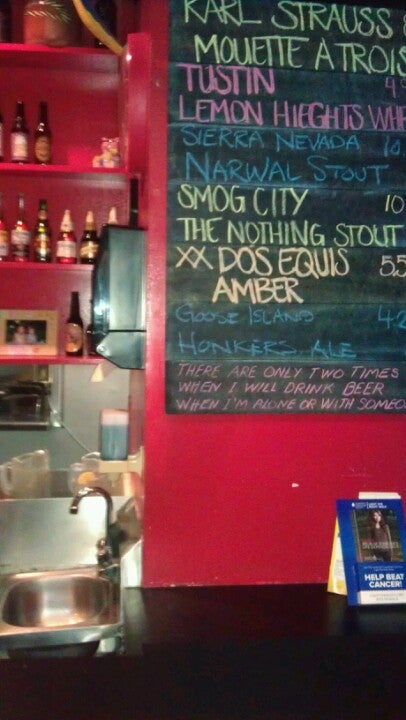 KARL STRAUSS &
MOUETTE A TROIS
TUSTIN 4.
LEMON HIEGHTS WHE
SIERRA NEVADA 10.
NARWAL STOUT
SMOG CITY 10
THE NOTHING STOUT
XX DOS EQUIS 5.5
AMBER
GOOSE ISLAND 4.2
HONKERS ALE
THERE ARE ONLY TWO TIMES
WHEN I WILL DRINK BEER
WHEN I'M ALONE OR WITH SOMEO
HELP BEAT
CANCER!